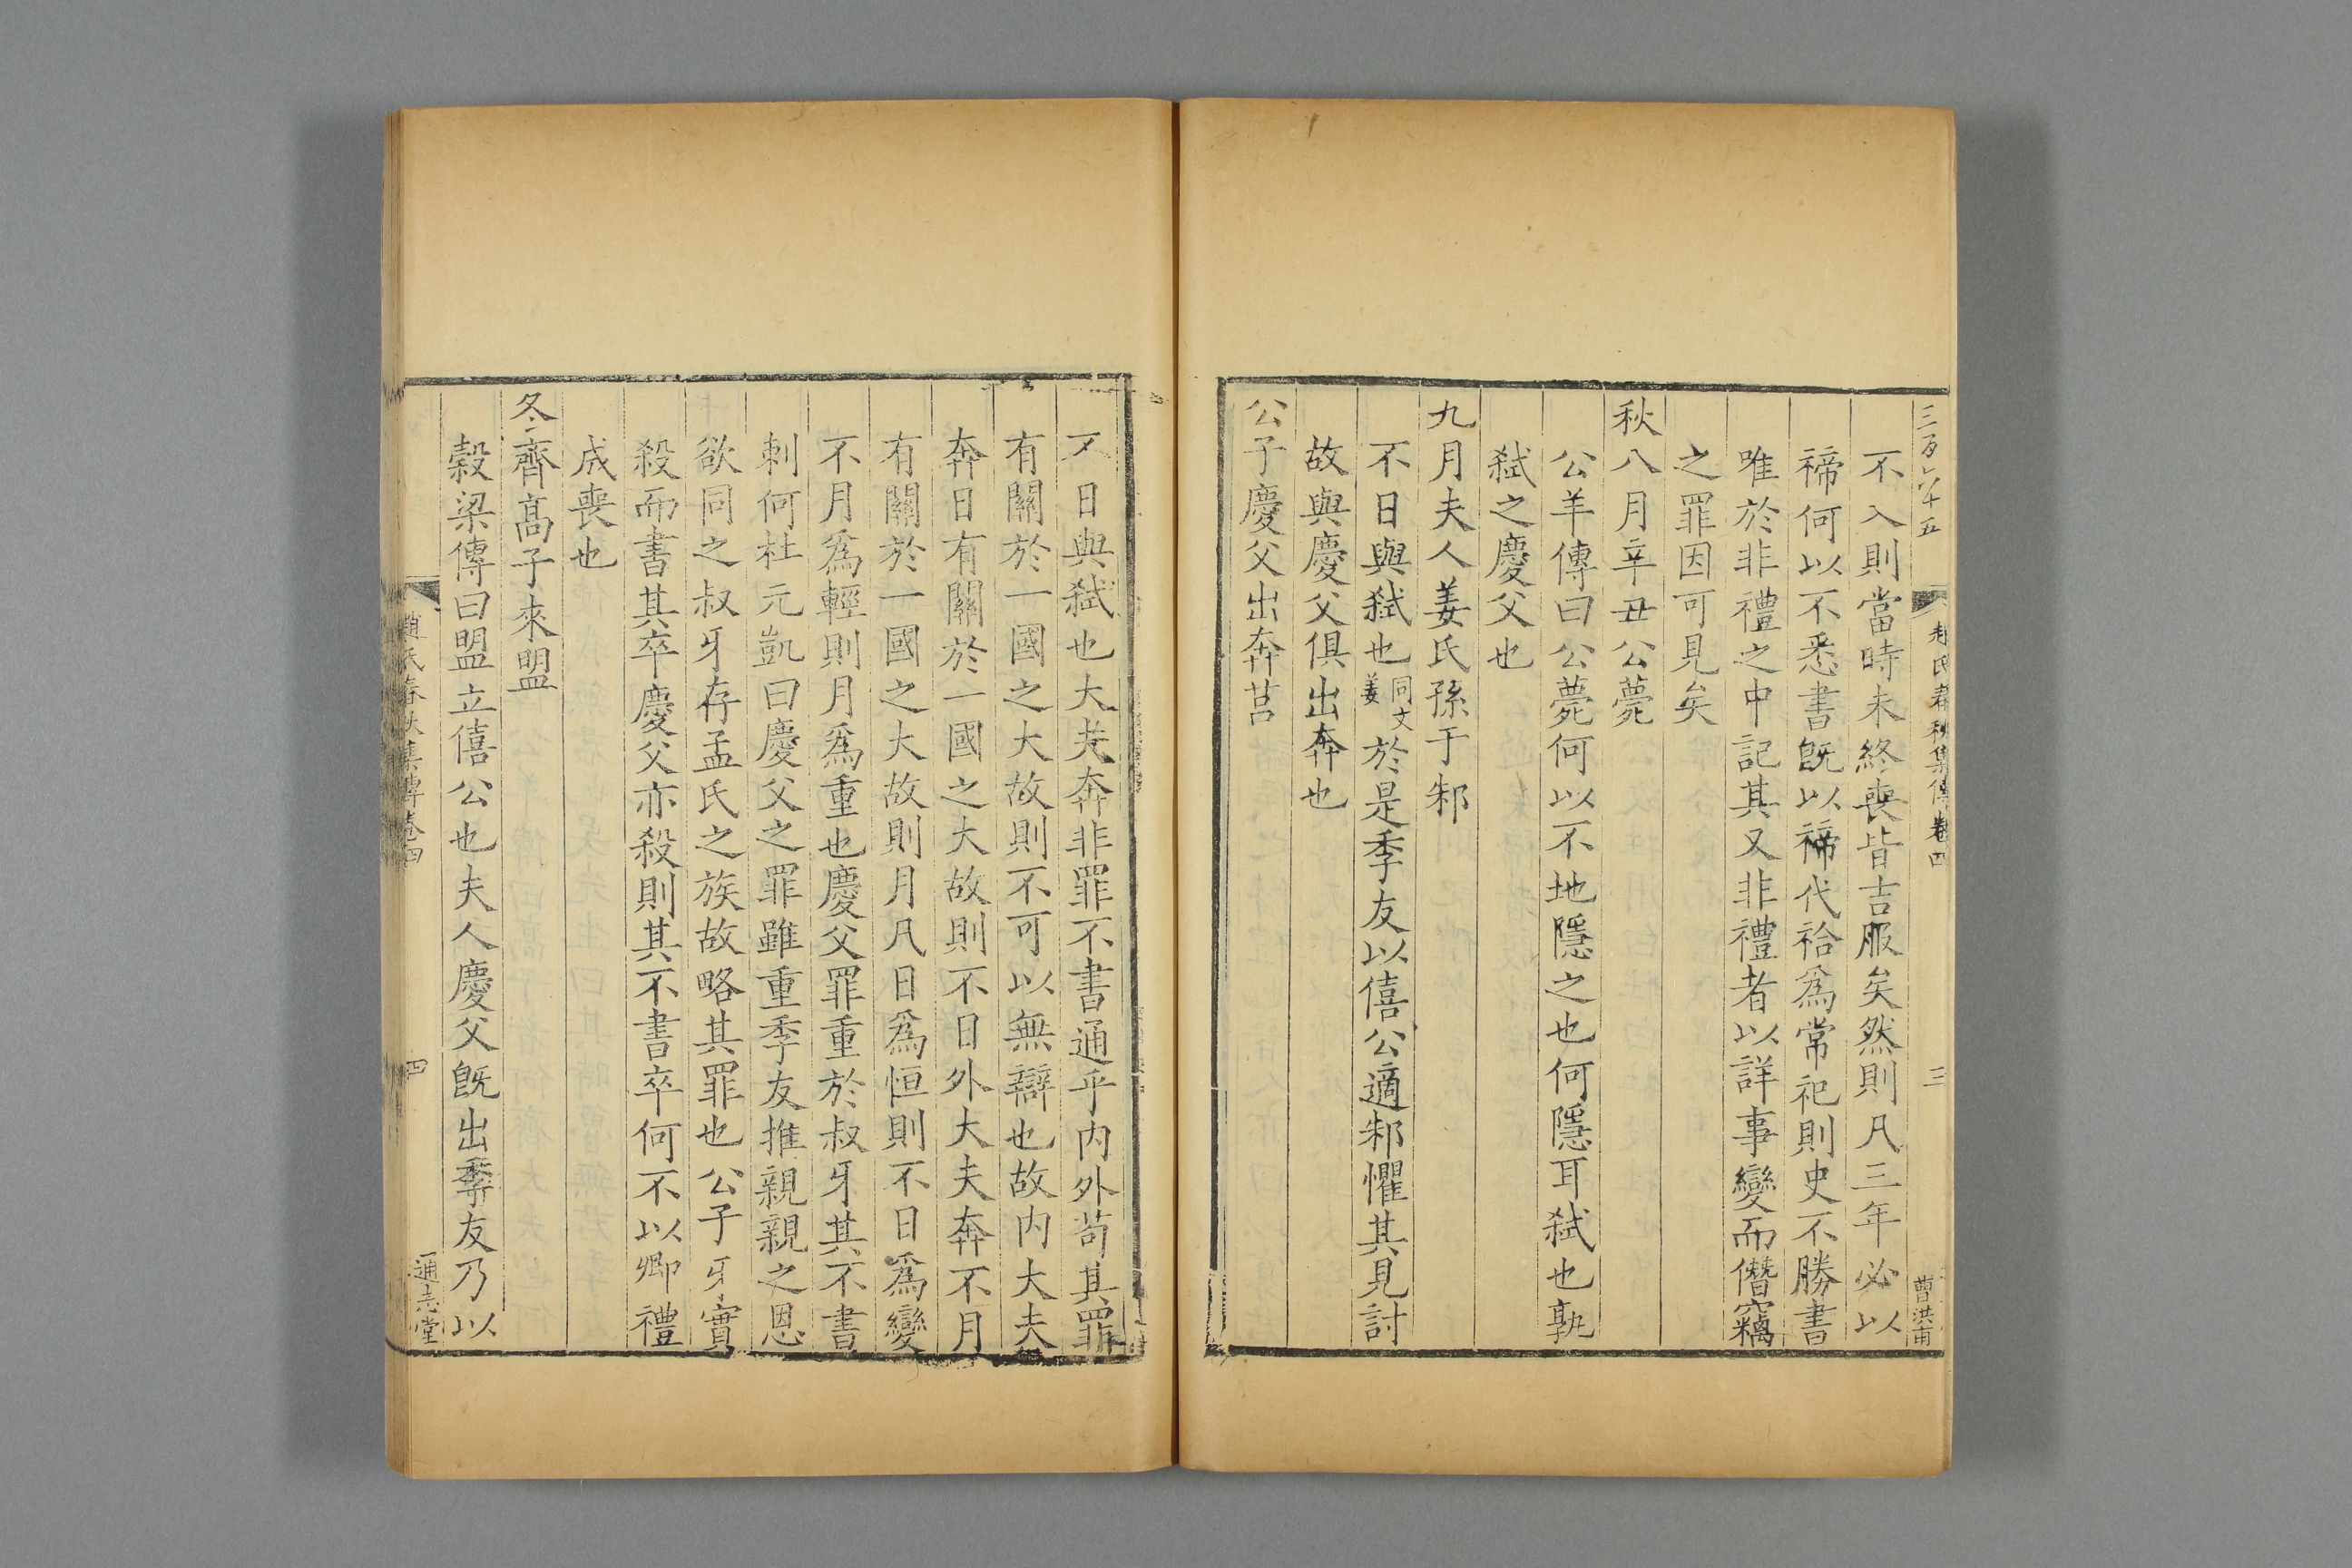 三百六十五 趙氏春秋集傳卷四 三 曹洪甫
不入則當時未終喪皆吉服矣然則凡三年必以
禘何以不悉書旣以禘代祫爲常祀則史不勝書
唯於非禮之中記其又非禮者以詳事變而僭竊
之罪因可見矣
秋八月辛丑公薨
公羊傳曰公薨何以不地隱之也何隱耳弒也孰
弒之慶父也
九月夫人姜氏孫于邾
不日與弒也同文姜於是季友以僖公適邾懼其見討
故與慶父俱出奔也
公子慶父出奔莒
不日與弒也大夫奔非罪不書通乎內外苟其罪
有關於一國之大故則不可以無辯也故內大夫
奔日有關於一國之大故則不日外大夫奔不月
有關於一國之大故則月凡日爲恒則不日爲變
不月爲輕則月爲重也慶父罪重於叔牙其不書
刺何杜元凱曰慶父之罪雖重季友推親親之恩
欲同之叔牙存孟氏之族故略其罪也公子牙實
殺而書其卒慶父亦殺則其不書卒何不以卿禮
成喪也
冬齊高子來盟
穀梁傳曰盟立僖公也夫人慶父旣出季友乃以
趙氏春秋集傳卷四 四 通志堂